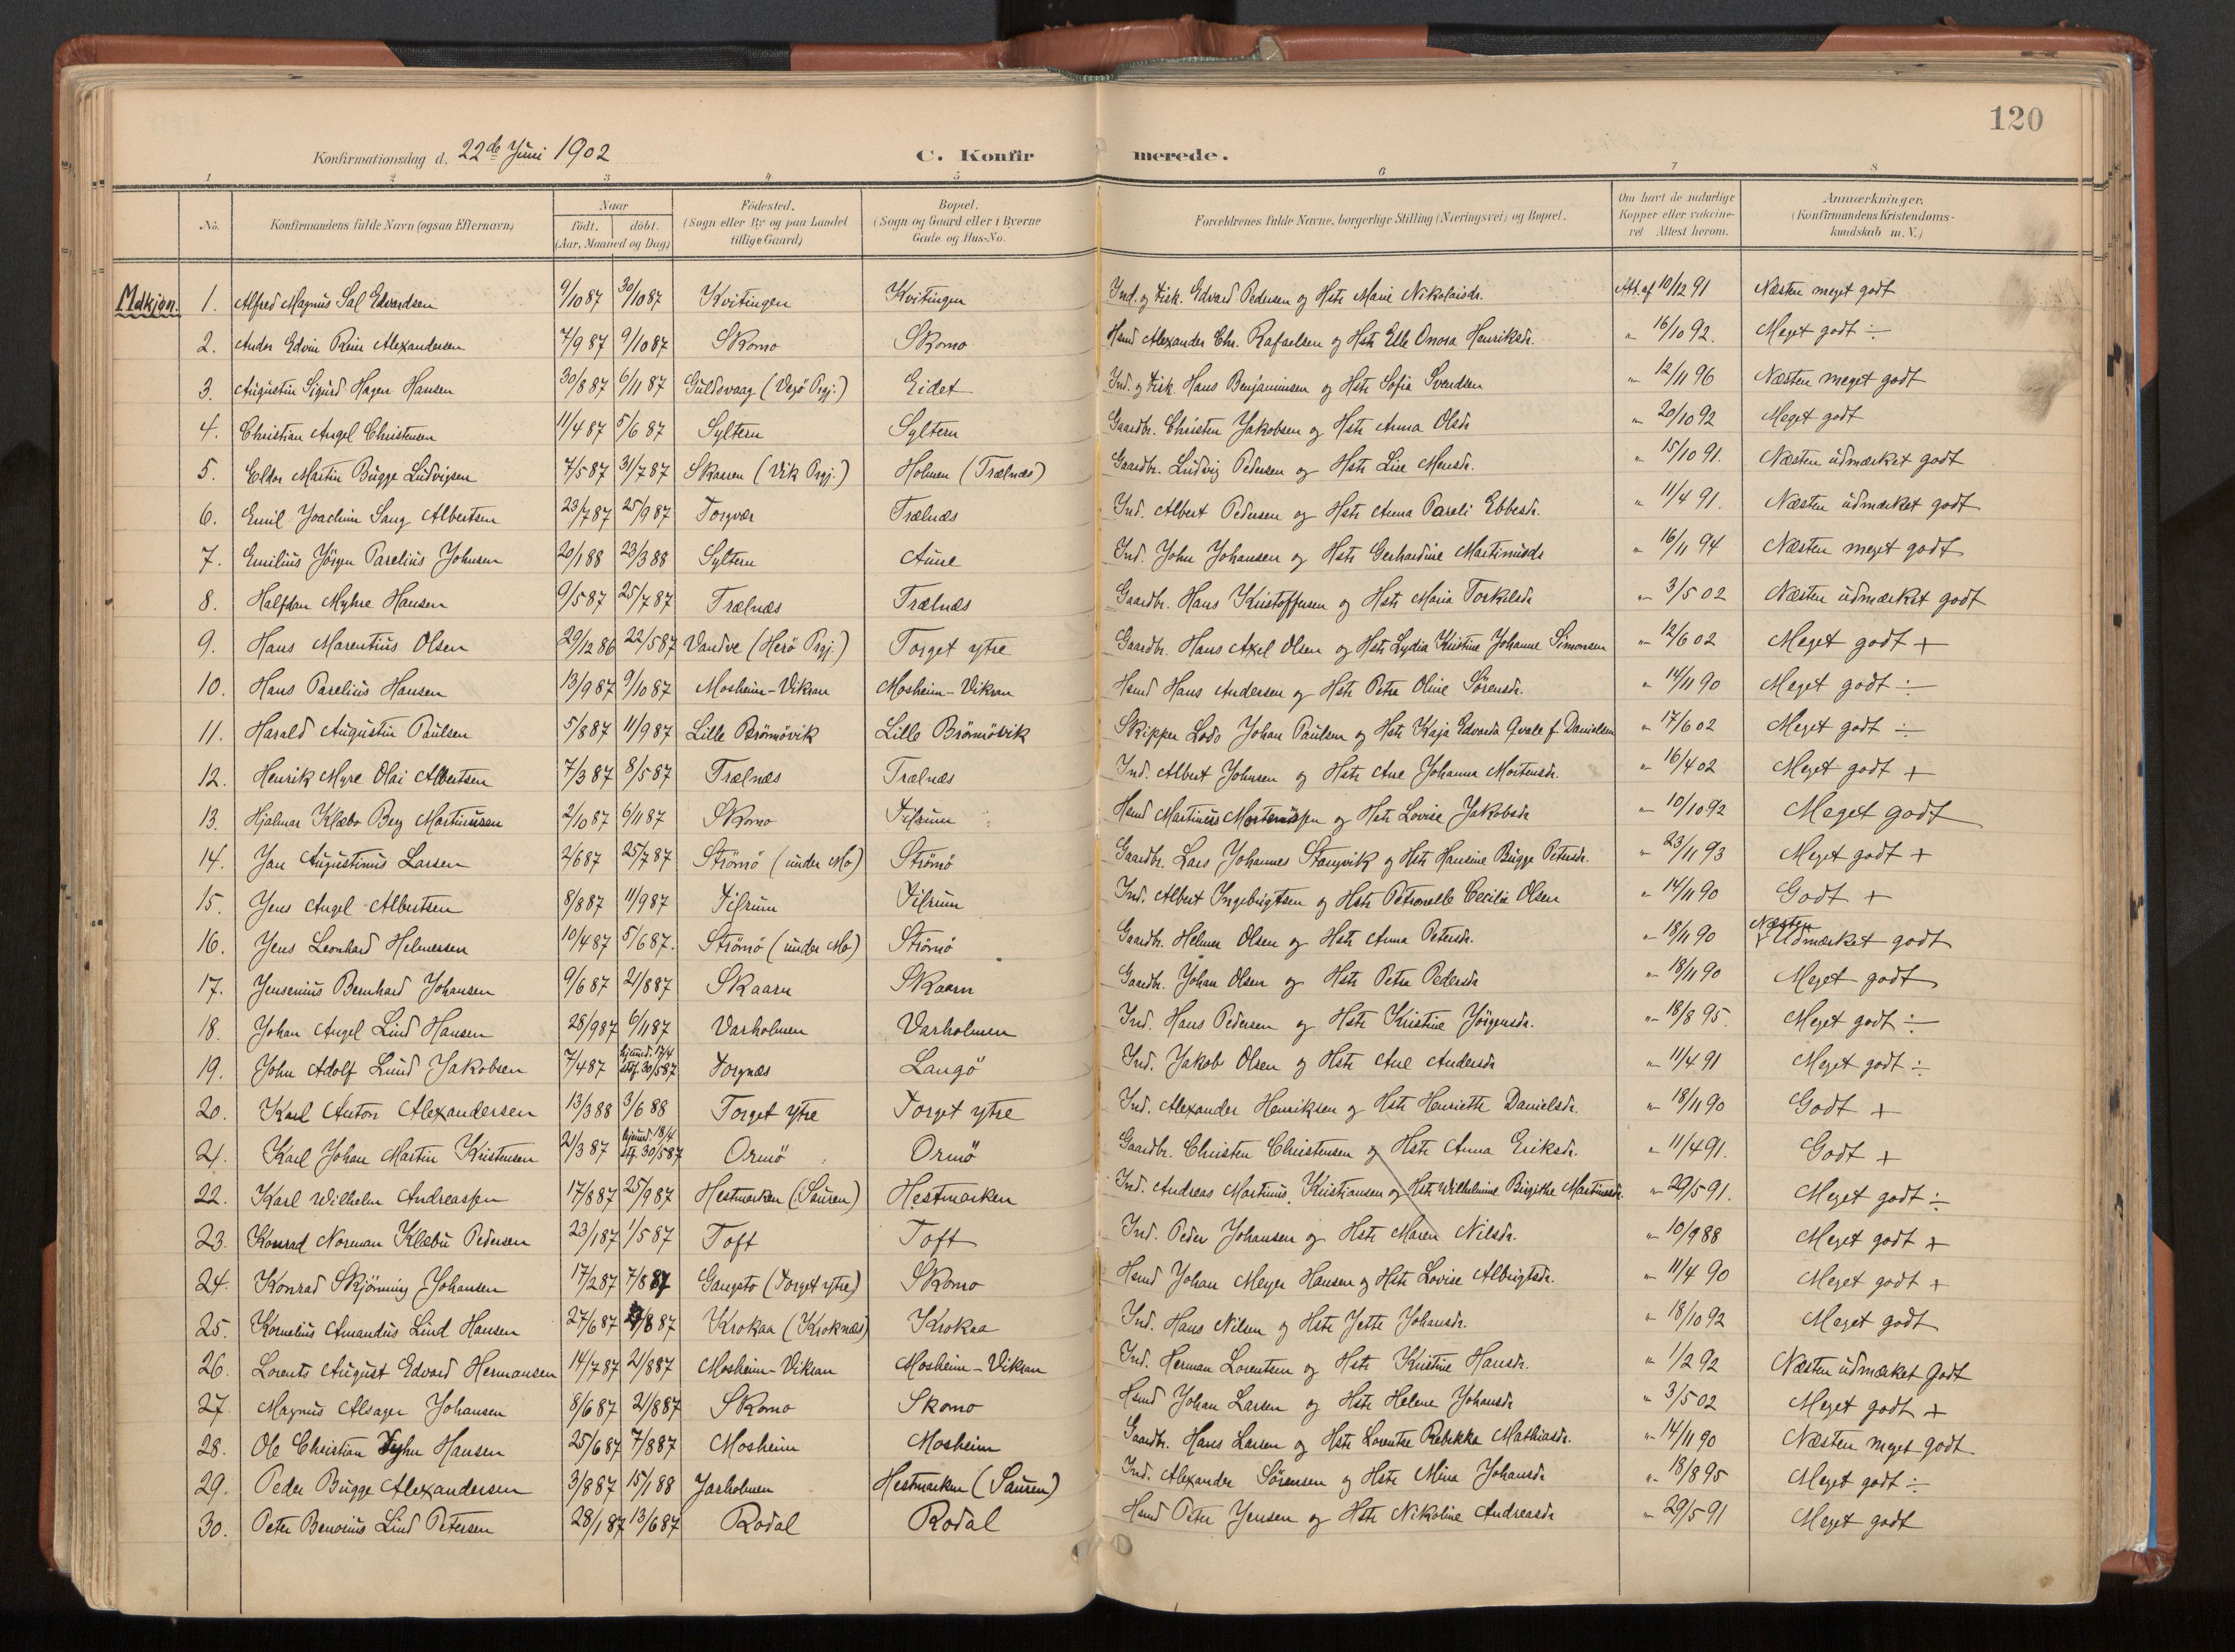 120
Konfirmationsdag d. 22de Juni 1902 C. Konfirmerede.
1 2 3 4 5 6 7 8
No. Konfirmandens fulde Navn (ogsaa Efternavn) Naar født, døbt. (Aar, Maaned og Dag) Fødested. (Sogn eller By og paa Landet tillige Gaard) Bopæl. (Sogn og Gaard eller i Byerne Gade og Hus-No. Forældrenes fulde Navne, borgerlige Stilling (Næringsvei) og Bopæl. Om havt de naturlige Kopper eller vakcineret Attest herom. Anmærkninger, (Konfirmandens Kristendomskundskab m. V.)
Mdkjøn. 1. Alfred Magnus Sal Edvardsen 9/10 87 30/10 87 Kvitingen Kvitingen Ind. og Fisk. Edvard Pedersen og Hstr Marie Nikolaisdr. Att. af 10/12 91 Næsten meget godt
2. Andor Edvin Rein Alexandersen 7/9 87 9/10 87 Skomo Skomo Hsmd Alexander Chr. Rafaelsen og Hstr Elle Onora Henriksdr. " 16/10 92. Meget godt ÷
3. Augustin Sigurd Hagen Hansen 30/8 87 6/11 87 Guldsvaag (Vegø Prgj.) Eidet Ind. og Fisk. Hans Benjaminsen og Hstr Sofia Svendsen " 12/11 96 Næsten meget godt
4. Christian Angel Christensen 11/4 87 5/6 87 Syltern Syltern Gaardbr. Christen Jakobsen og Hstr Anna Olsdr " 20/10 92 Meget godt
5. Eldor Martin Bugge Ludvigsen 7/5 87 31/7 87 Skaaren (Vik Prgj.) Holmen (Trælnæs) Gaardbr. Ludvig Pedersen og Hstr Lise Monsdr. " 15/10 91. Næsten udmærket godt
6. Emil Joachim Sang Albertsen 23/7 87 25/9 87 Torgvær Trælnæs Ind. Albert Pedersen og Hstr Anna Pareli Ebbesdr. " 11/4 91. Næsten udmærket godt
7. Emilius Jørgen Parelius Johnsen 20/1 88 23/3 88 Syltern Aune Ind. John Johansen og Hstr Gerhardine Martinusdr " 16/11 94 Næsten meget godt
8. Halfdan Myhre Hansen 9/5 87 25/7 87 Trælnæs Trælnæs Gaardbr. Hans Kristoffersen og Hstr Maria Torkelsdr " 3/5 02 Næsten udmærket godt
9. Hans Marentius Olsen 29/12 86 22/5 87 Vandve (Herø Prgj.) Torget ytre Gaardbr. Hans Axel Olsen og Hstr Lydia Kristine Johanne Simonsen " 12/6 02 Meget godt +
10. Hans Parelius Hansen 13/9 87 9/10 87 Mosheim-Vikran Mosheim-Vikran Hsmd Hans Andersen og Hstr Petra Oline Sørensdr. " 14/11 90 Meget godt ÷
11. Harald Augustin Paulsen 5/8 87 11/9 87 Lille Brømøvik Lille Brømøvik Skipper Lods Johan Paulsen og Hstr Kaja Edvarda Qvale f. Danielsen " 17/6 02 Meget godt ÷
12. Henrik Myre Olai Albertsen 7/3 87 8/5 87 Trælnæs Trælnæs Ind. Albert Johnsen og Hstr Ane Johanna Mortensdr. " 16/4 02 Meget godt +
13. Hjalmar Klæbo Berg Martinussen 2/10 87 6/11 87 Skomo Tilrum Hsmd Martinus Mortenssen og Hstr Lovise Jakobsdr " 10/10 92 Meget godt
14. Jan Augustinus Larsen 2/6 87 25/7 87 Strømø (under Mo) Strømø Gaardbr. Lars Johannes Stangvik og Hstr Hansine Bugge Petersdr. " 23/11 93 Meget godt +
15. Jens Angel Albertsen 8/8 87 11/9 87 Tilrum Tilrum Ind. Albert Ingebrigtsen og Hstr Petronelle Cecilie Olsen " 14/11 90 Godt +
16. Jens Leonhard Helmersen 10/4 87 5/6 87. Strømø (under Mo) Strømø Gaardbr. Helmer Olsen og Hstr Anna Petersdr. " 18/11 90 Næsten Udmærket godt
17. Jensenius Bernhard Johansen 9/6 87 21/8 87 Skaarn Skaarn Gaardbr. Johan Olsen og Hstr Petra Pedersdr " 18/11 90 Meget godt
18. Johan Angel Lind Hansen 28/9 87 6/11 87 Varholmen Varholmen Ind. Hans Pedersen og Hstr Kristine Jørgensdr. " 18/8 95. Meget godt ÷
19. John Adolf Lund Jakobsen 7/4 87 hjemd. 17/4 stf. 30/5 87 Torgnæs Langø Ind. Jakob Olsen og Hstr Ane Andersdr " 11/4 91 Meget godt ÷
20. Karl Anton Alexandersen 13/3 88 3/6 88 Torget ytre Torget ytre Ind. Alexander Henriksen og Hstr Henriette Danielsdr. " 18/11 90 Godt +
21. Karl Johan Martin Kristensen 21/3 87 hjemd. 18/4 stf. 30/5 87 Ormø Ormø Gaardbr. Christen Christensen og Hstr Anna Eriksdr. " 11/4 91. Godt +
22. Karl Wilhelm Andreassen 17/8 87 25/9 87 Hestmarken (Sauren) Hestmarken Ind. Andreas Martinus Kristiansen og Hstr Wilhelmine Birgithe Martinusdr. " 29/5 91. Meget godt ÷
23. Konrad Norman Klæbu Pedersen 23/1 87 1/5 87 Toft Toft Ind. Peder Johansen og Hstr Maren Nilsdr. " 10/9 88 Meget godt +
24. Konrad Skjønning Johansen 17/2 87 7/8 87 Gangstø (Torget ytre) Skomo Hsmd Johan Meyer Hansen og Hstr Lovise Albrigtsdr. " 11/4 90 Meget godt +
25. Kornelius Amandus Lind Hansen 27/6 87 /8 87 Krokaa (Kroknæs) Krokaa Ind. Hans Nilsen og Hstr Jette Johansdr. " 18/10 92 Meget godt
26. Lorents August Edvard Hermansen 14/7 87 21/8 87 Mosheim-Vikran Mosheim-Vikran Ind. Herman Lorentsen og Hstr Kristine Hansdr. " 1/2 92 Næsten udmærket godt
27. Magnus Alsager Johansen 8/6 87 21/8 87 Skomo Skomo Hsmd Johan Larsen og Hstr Helene Johansdr " 3/5 02 Meget godt +
28. Ole Christian Hansen 25/6 87 7/8 87 Mosheim Mosheim Gaardbr. Hans Larsen og Hstr Lorentse Rebekka Mathiasdr. " 14/11 90 Næsten meget godt
29. Peder Bugge Alexandersen 3/8 87 15/1 88 Jarholmen Hestmarken (Sauren) Ind. Alexander Sørensen og Hstr Mina Johansdr " 18/8 95 Meget godt ÷
30. Peter Benonius Lind Petersen 28/1 87 13/6 87 Rodal Rodal Hsmd Peter Jensen og Hstr Nikoline Andreasdr " 29/5 91 Meget godt